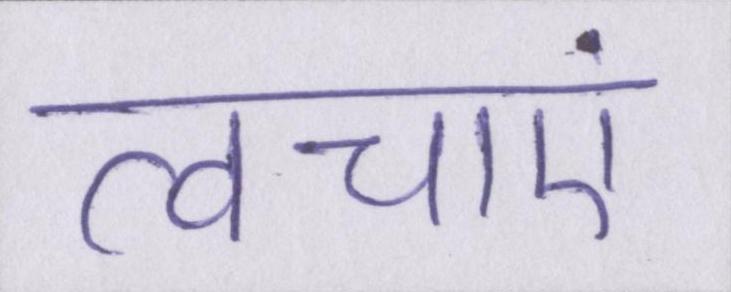 त्वचाएं